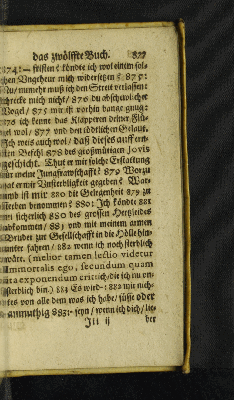 das zwölffte Buch. 877
874:— fristen? köndte ich wol einem sol-
chen Ungeheur mich widersetzen? 875:
nunmehr muß ich den Streit verlassen:
schrecke mich nicht/ 876 du abscheulicher
Vogel/ 875 mir ist vorhin bange gnug:
876 ich kenne das Klappern deiner Flü-
gel wol/ 877 und den tödtlichen Gelaut.
Ich weis auch wol/ daß dieses auff ein-
Befehl 878 des großmütigen Jovis
geschicht. Thut er mir solche Erstattung
für meine Jungfrawschafft? 879 Worzu
hat er mir Unsterbligkeit gegeben? War-
umb ist mir 880 die Gelegenheit 879 zu
sterben benommen? 880: Ich köndte 881
sicherlich 880 des grossen Hertzleides
abkommen/ 881 und mit meinem armen
Bruder zur Gesellschafft in die Hölle hin-
unter fahren/ 882 wenn ich noch sterblich
wäre. (melior tamen lectio videtur
Immortalis ego, secundum quam
ita exponendum erit; ich/ die ich nun
sterblich bin.) 883 Es wird: 882 mir nich-
tes von alle dem was ich habe/ süsse oder
anmuthig 883: seyn/ wenn ich dich/ lie-
Iii ij ber